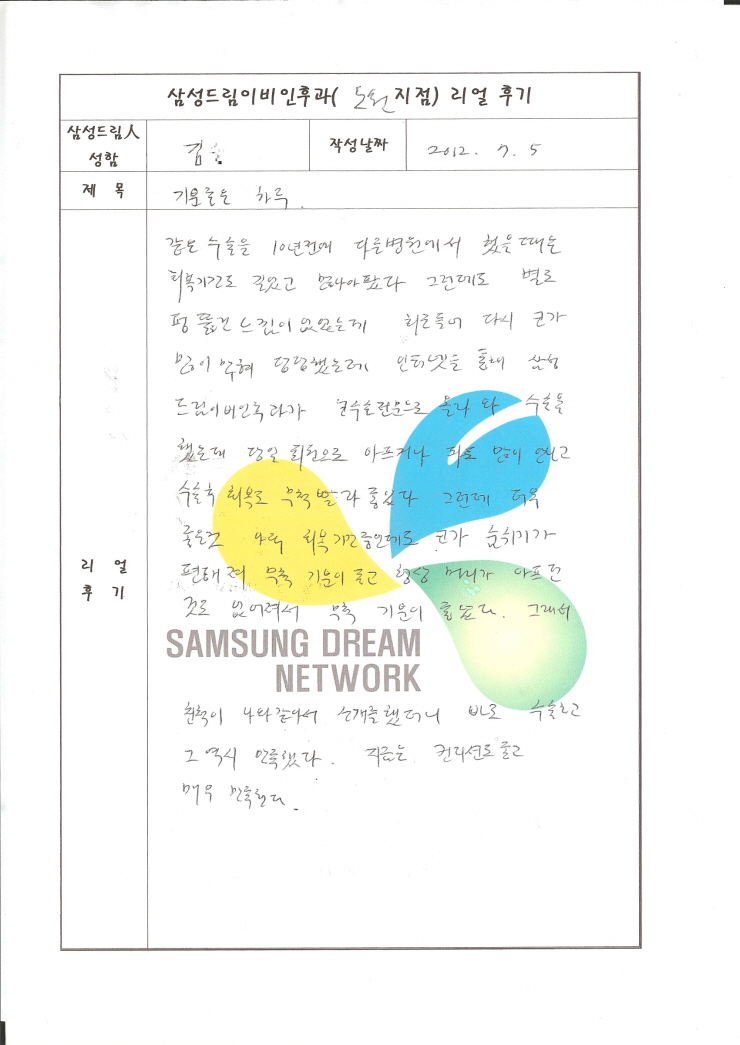 삼성드림이비인후과( 노원 지점) 리얼 후기
삼성드림人
성함
김
작성날짜
2012. 7. 5
제 목
기분좋은 하루.
리 얼
후 기
같은 수술을 10년전에 다른병원에서 했을때는
회복기간도 길었고 많이아팠다 그런데도 별로
펑 뚫린 느낌이 없었는데 최근들어 다시 코가
많이 막혀 답답했는데, 인터넷을 통해 삼성
드림이비인후과가 코수술전문으로 올라 와 수술을
했는데 당일 퇴원으로 아프거나 피도 많이 안나고
수술후 회복도 무척 빨라 좋았다 그런데 더욱
좋은건 아직 회복기간중인데도 코가 숨쉬기가
편해져 무척 기분이 좋고 항상 머리가 아프던
것도 없어져서 무척 기분이 좋았다. 그래서
SAMSUNG DREAM
NETWORK
친척이 나와같아서 소개를했더니 바로 수술하고
그 역시 만족했다. 지금은 컨디션도 좋고
매우 만족한다.